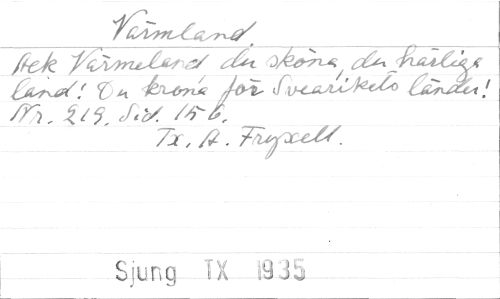 Värmland.
Ack Värmeland du sköna, du härliga
land! Du krona för Svearikets länder!
Nr. 219. Sid. 156.
Tx. A. Fryxell.
Sjung TX 1935